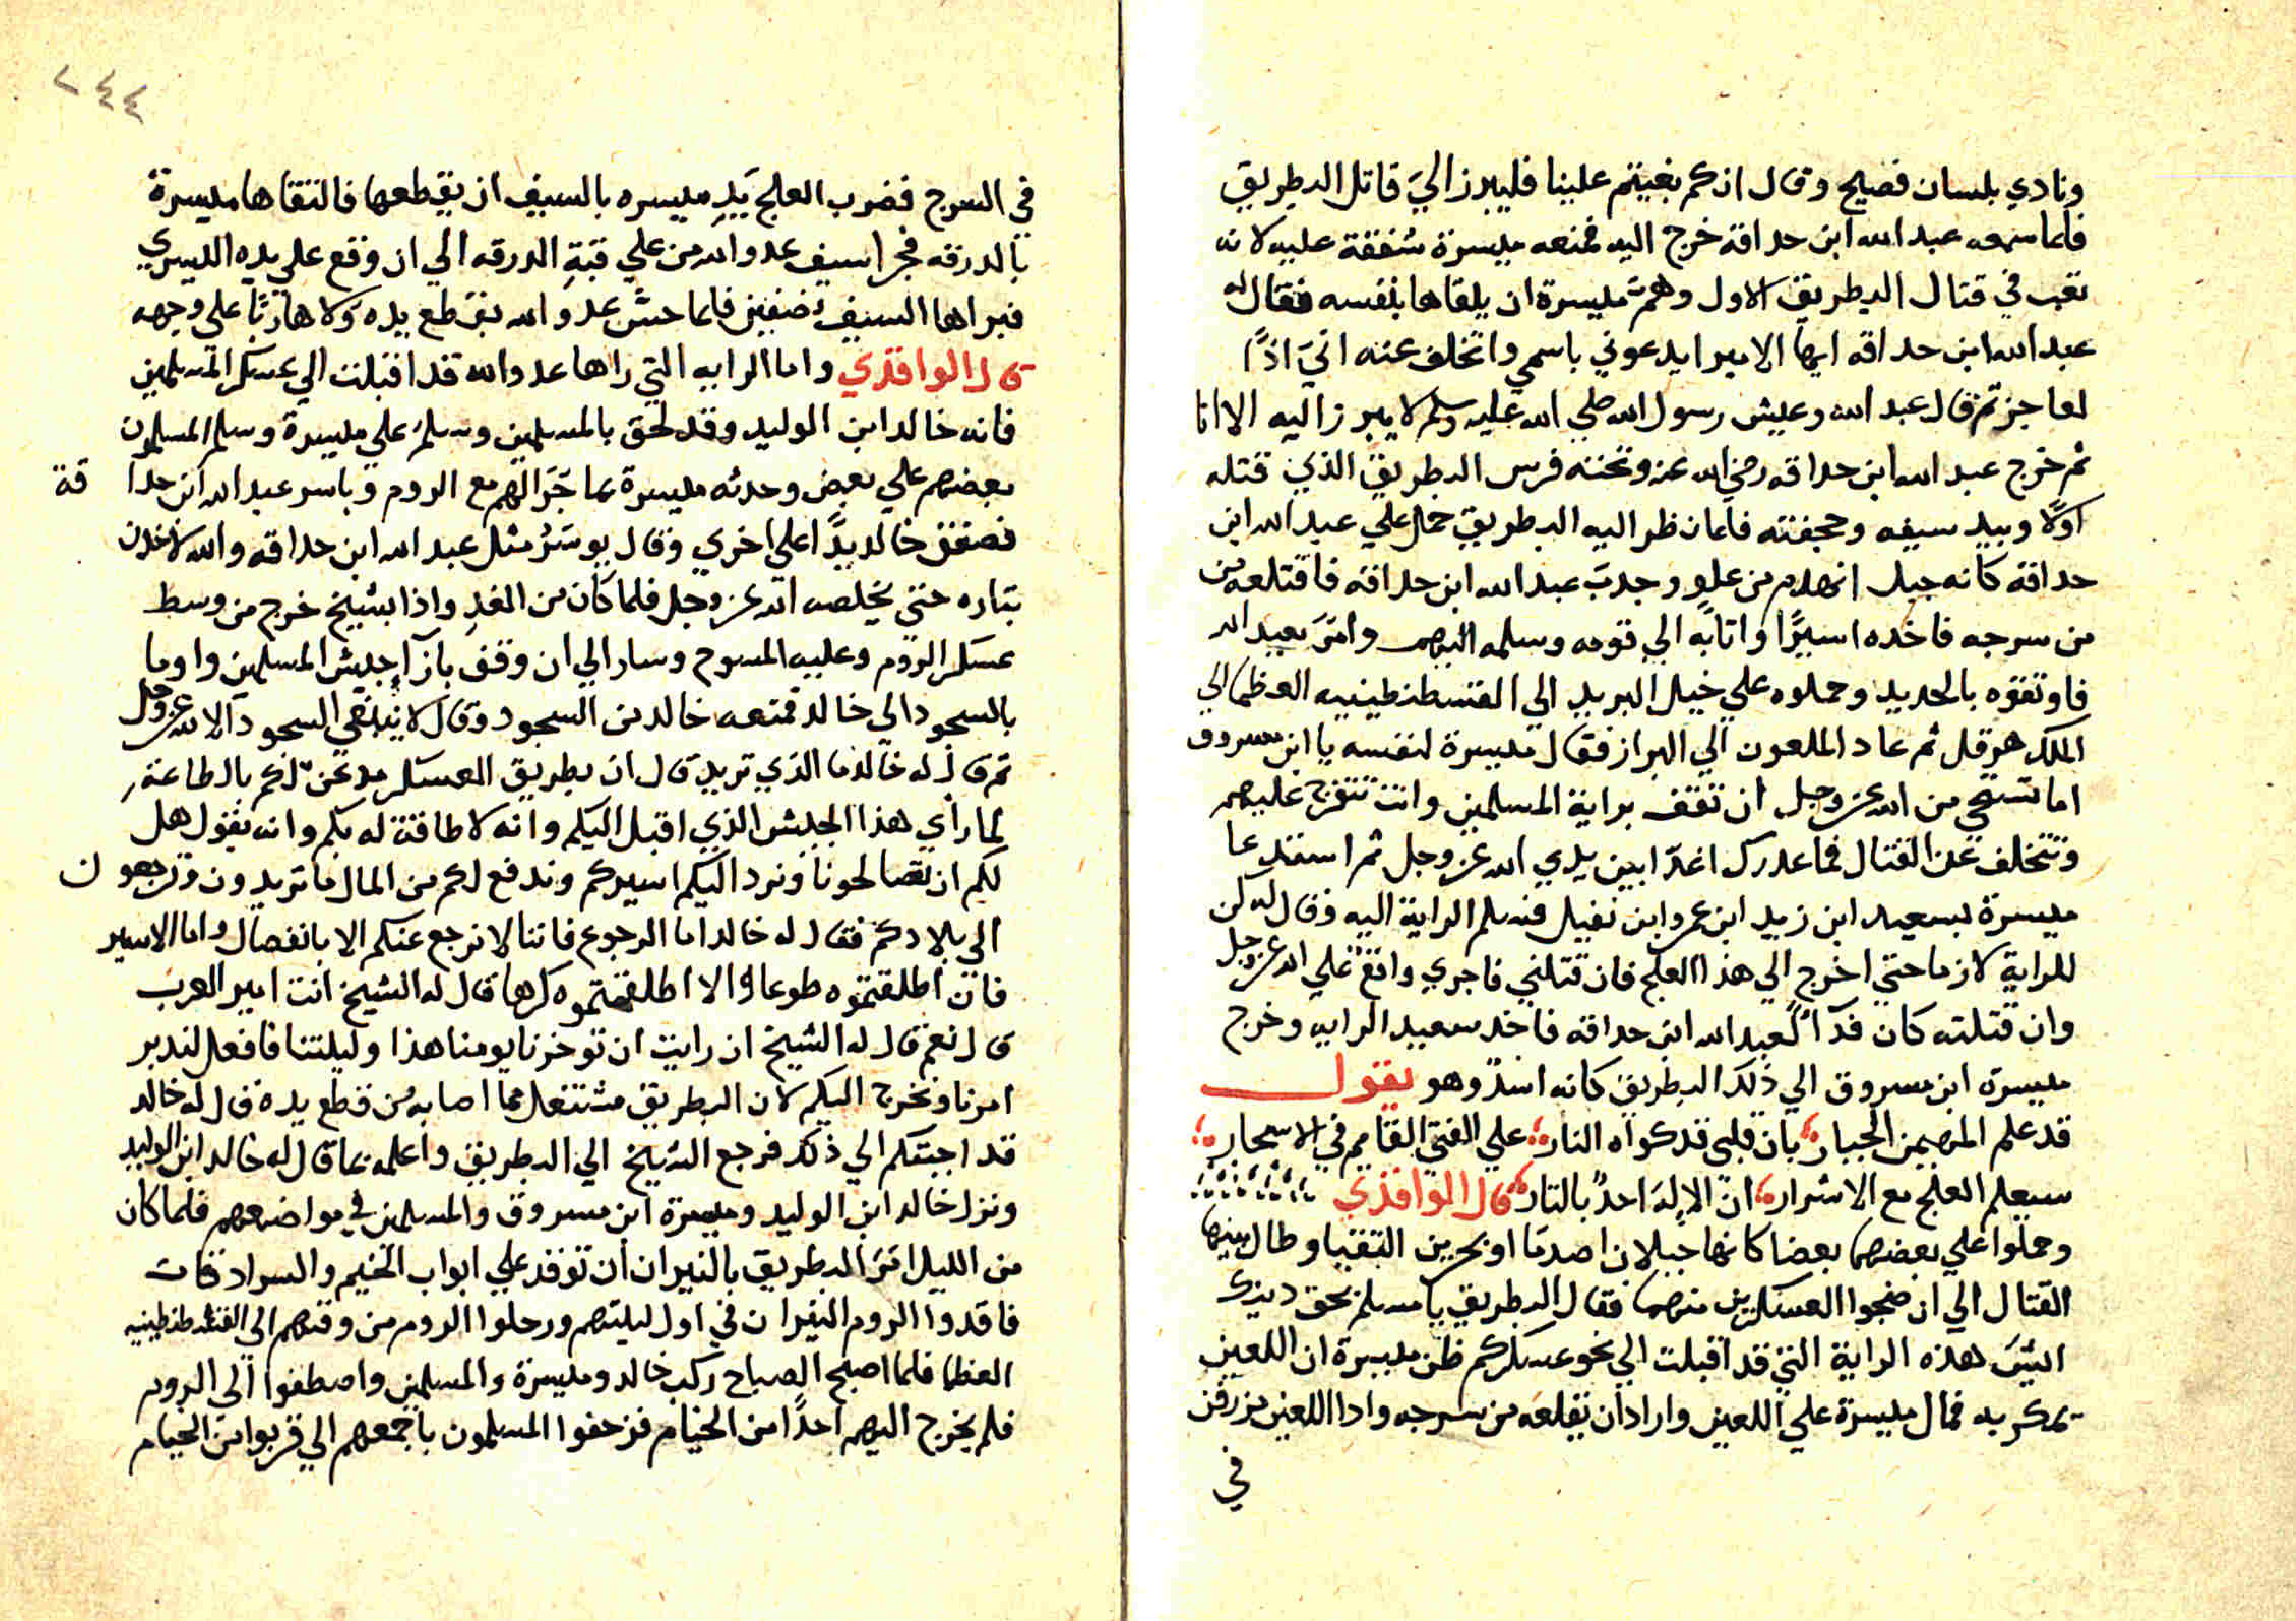 ونادي بلسان فصيح وقال انكم بغيتم علينا فليبرز اليَ قاتل البطريق
فلما سمعه عبد الله ابن حداقه خرج اليه فمنعه ميسرة شفقة عليه لانه
تعب في قتال البطريق الاول وهمَّ ميسرة ان يلقاها بنفسه فقال له
عبد الله ابن حداقه ايها الامير ايدعوني باسمي واتخلف عنه اني اذًا
لعاجز ثم قال عبد الله وعيش رسول الله صلي الله عليه وسلم لا يبرز اليه الا انا
ثم خرج عبد الله ابن حداقه رضي الله عنه وتحته فرس البطريق الذي قتله
اولًا وبيد سيفه وحجفته فلما نظر اليه البطريق حمل علي عبد الله ابن
حداقة كانه جبل انهدم من علوٍ وجدبَ عبد الله ابن حداقه فاقتلعه من
من سرجه فاخده اسيرًا واتا به الي قومه وسلمه اليهم وامرَ بعبد الله
فاوثقوه بالحديد وحملوه علي خيل البريد الي القسطنطينيه العظما الي
الملك هرقل ثم عاد الملعون الي البراز فقال ميسرة لنفسه يا ابن مسروق
اما تستحي من الله عز وجل ان تقف براية المسلمين وانت تتفرج عليهم
وتتخلف عن القتال فما عدرك اغدًا بين يدي الله عز وجل ثم استدعا
ميسرة بسعيد ابن زيد ابن عمرو ابن نفيل فسلم الراية اليه وقال له كن
للراية لازما حتي اخرج الي هذا العلج فان قتلني فاجري واقع علي الله عز وجل
وان قتلته كان فدآءً لعبد الله ابن حداقه فاخد سعيد الرايه وخرج
ميسرة ابن مسروق الي ذلك البطريق كانه اسدٌ وهو يقول
قد علم المهيمن الجبار بان قلبي قد كواه النار علي الفتي القايم في الاسحار
سيعلم العلج مع الاشرار انّ الاِلهَ احدٌ بالتار قال الواقدي
وحملوا علي بعضهما بعضا كانهما جبلان اصدمَا او بحرين التقيا وطال بينهما
القتال الي ان ضجوا العسكرين منهما فقال البطريق يا مسلم بحق دينك
ايشَ هذه الراية التي قد اقبلت الي نحو عسكركم ظن ميسرة ان اللعين
يمكر به فمال ميسرة علي اللعين واراد ان يقلعه من سرجه وادا اللعين مزرفن
في
٢٤٤
في السرج فضرب العلج يَدِ ميسره بالسيف ان يقطعها فالتقاها ميسرة
بالدرقه فجرا سيف عدو الله من علي قبةِ الدرقه الي ان وقع علي يده اليسري
فبراها السيف نصفين فلما حسَّ عدو الله بقطع يده وَلا هاربًا علي وجهه
قال الواقدي واما الرايه التي راها عدو الله قد اقبلت الي عسكر المسلمين
فانه خالد ابن الوليد وقد لحق بالمسلمين وسلمَ علي ميسرة وسلم المسلمون
بعضهم علي بعض وحدثه ميسرة بما جَرَا لهم مع الروم وباسر عبد الله ابن حدا قة
فصفق خالد يدًا علي اخري وقال يوسَرُ مثل عبد الله ابن حداقه والله لاخدن
بتاره حتي يخلصه الله عز وجل فلما كان من الغدِ واذا بشيخ خرج من وسط
عسكر الروم وعليه المسوح وسار الي ان وقف بازآءِ جيش المسلمين واوما
بالسجود الي خالد فمنعه خالد من السجود وقال لا ينبغي السجود آلا لله عز وجل
ثم قال له خالد ما الذي تريد قال ان بطريق العسكر مدعنٌ لكم بالطاعةِ
لما رأي هذا الجيش الذي اقبل اليكم وانه لا طاقة له بكم وانه يقول هل
لكم ان تصالحونا ونرد اليكم اسيركم وندفع لكم من المال ما تريدون وترجعون
الي بلادكم فقال له خالد اما الرجوع فاننا لا نرجع عنكم الا بانفصال واما الاسير
فان اطلقتموه طوعا والا اطلقتموه كرها قال له الشيخ انت امير العرب
قال نعم قال له الشيخ ان رايت ان توخرنا يومنا هذا وليلتنا فافعل لندبر
امرنا ونخرج اليكم لان البطريق مشتغل مما اصابه من قطع يده قال له خالد
قد اجبتكم الي ذلك فرجع الشيخ الي البطريق واعلمه بما قال له خالد ابن الوليد
ونزل خالد ابن الوليد وميسرة ابن مسروق والمسلمين في مواضعهم فلما كان
من الليل امرَ البطريق بالنيران ان توقد علي ابواب الخيم والسرادقات
فاقدوا الروم النيران في اول ليلتهم ورحلوا الروم من وقتهم الي القسطنطينيه
العظما فلما اصبح الصباح ركب خالد وميسرة والمسلمين واصطفوا الي الروم
فلم يخرج اليهم احدًا من الخيام فزحفوا المسلمون باجمعهم الي قربوا من الخيام